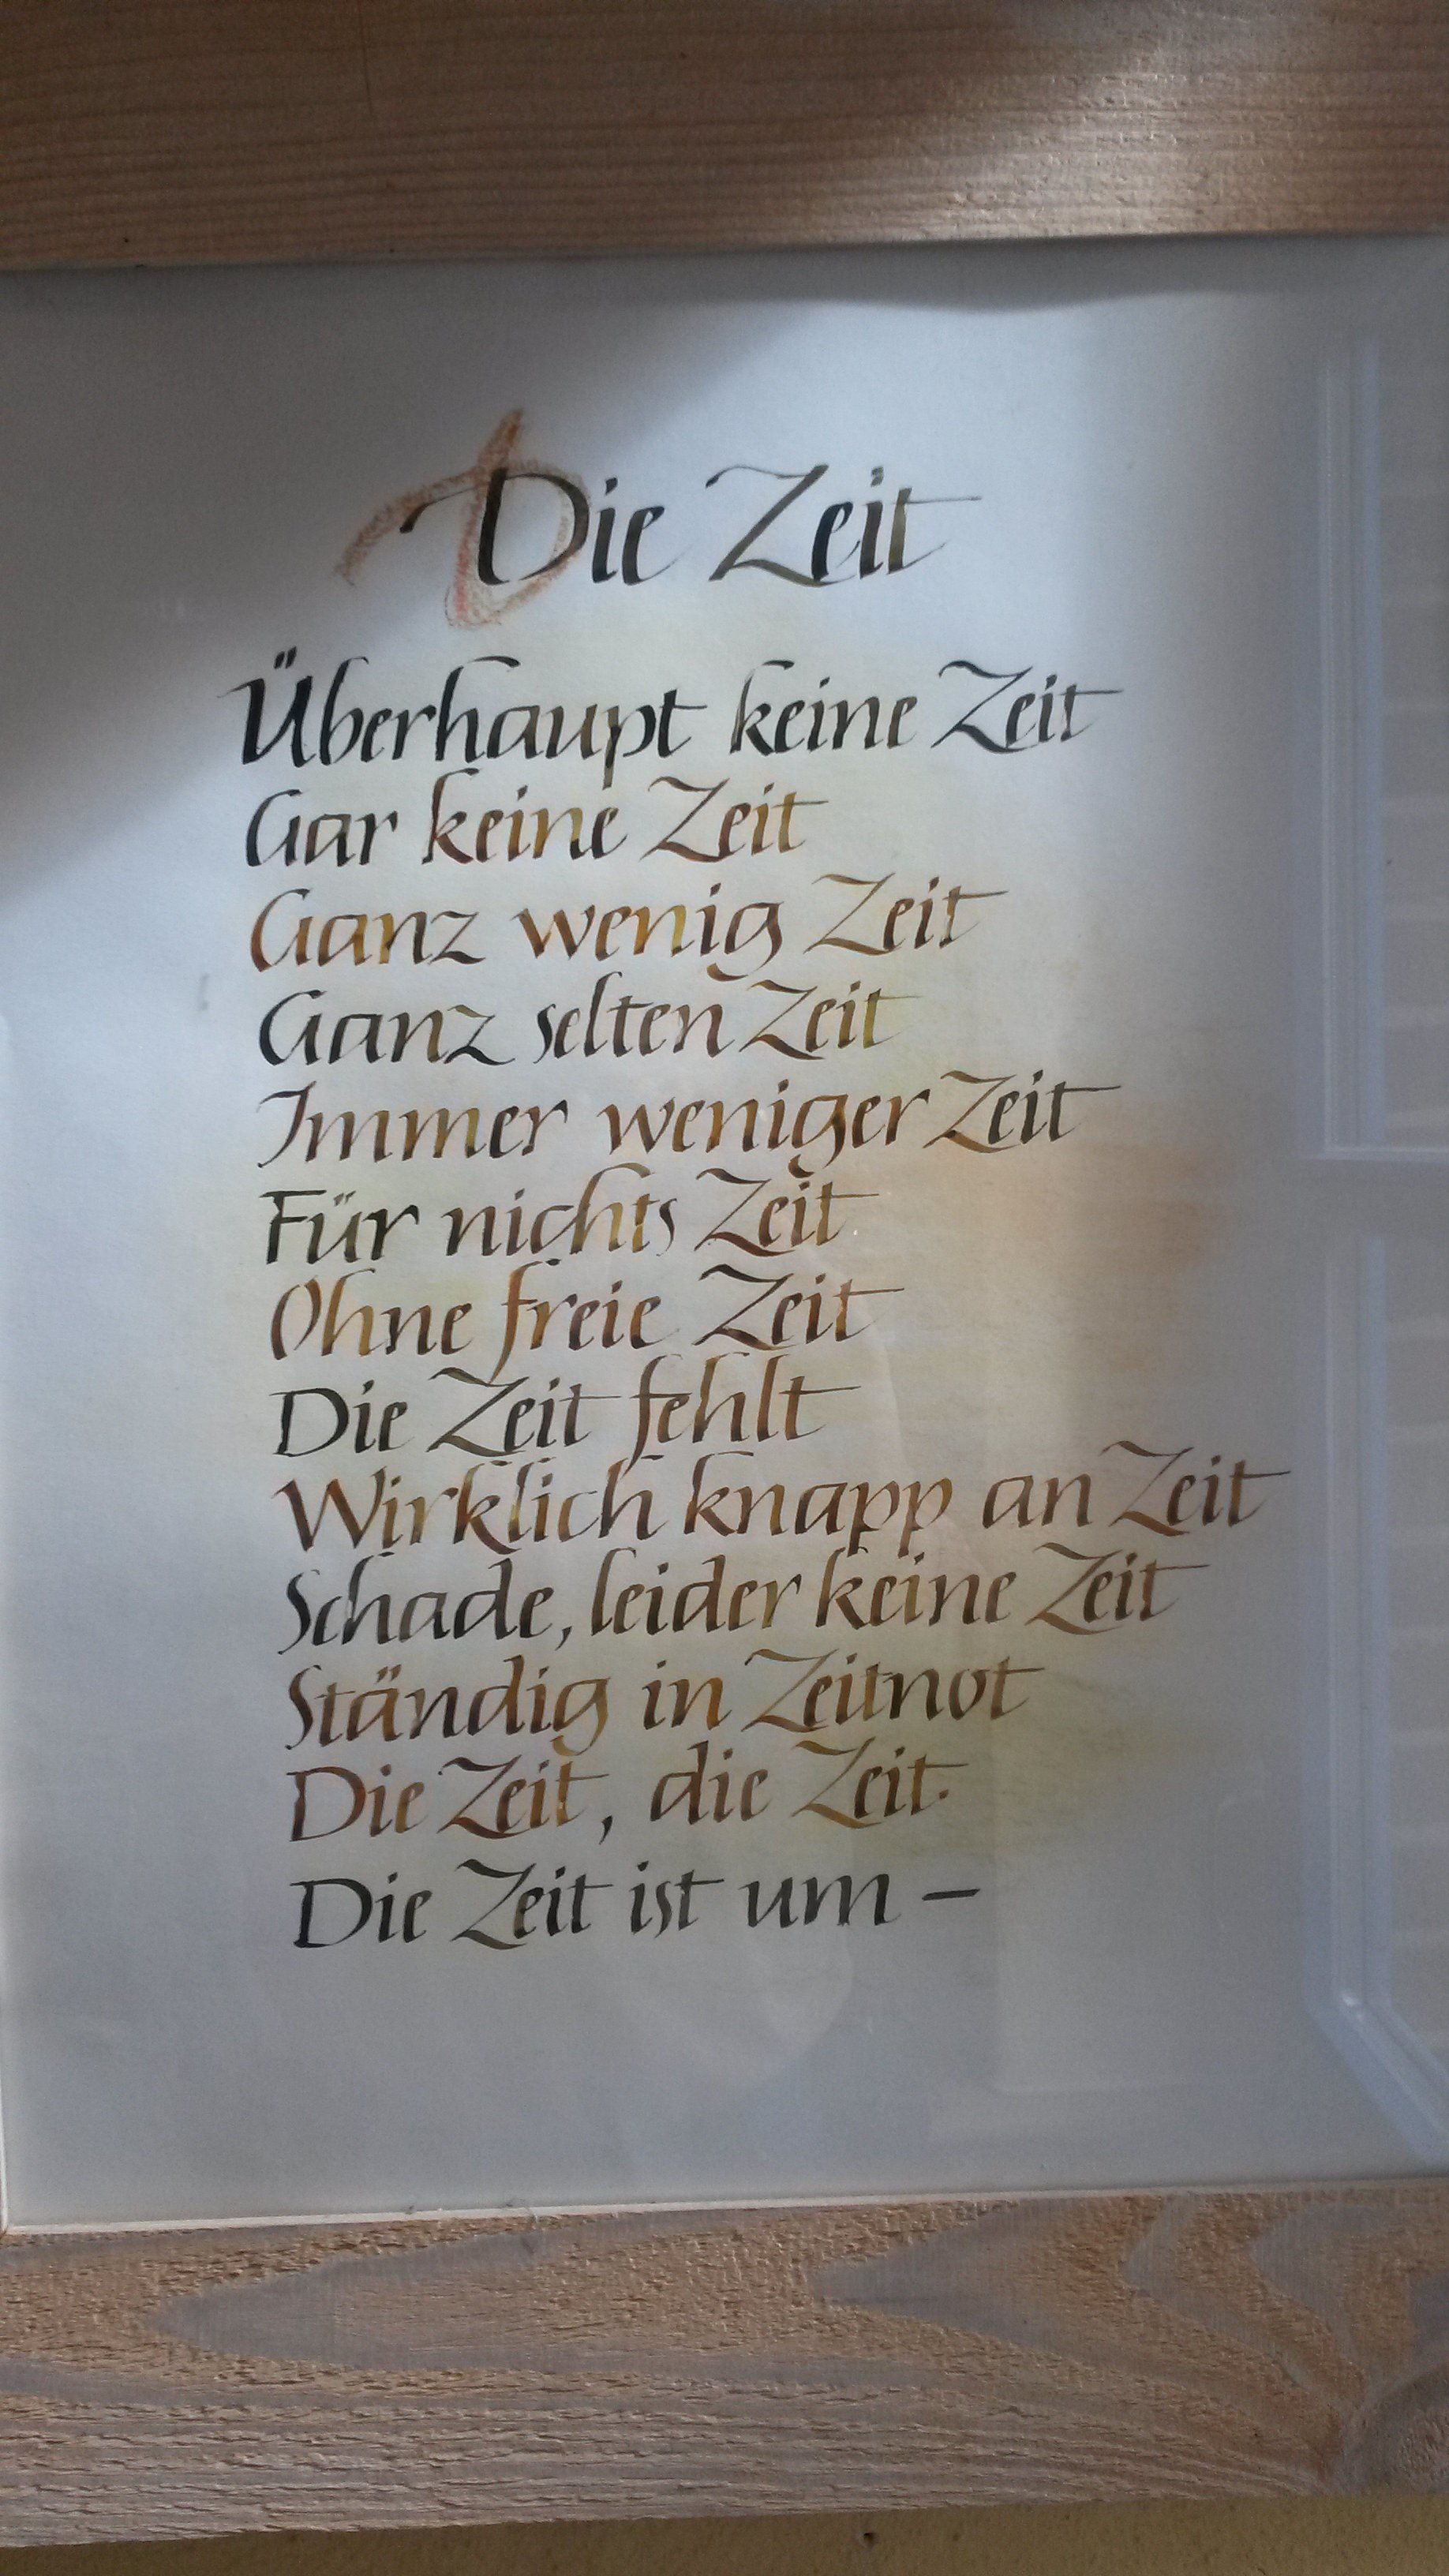 Die Zeit
Überhaupt keine Zeit
Gar keine Zeit
Ganz wenig Zeit
Ganz selten Zeit
Immer weniger Zeit
Für nichts Zeit
Ohne freie Zeit
Die Zeit fehlt
Wirklich knapp an Zeit
Schade, leider keine Zeit
Ständig in Zeitnot
Die Zeit, die Zeit.
Die Zeit ist um –